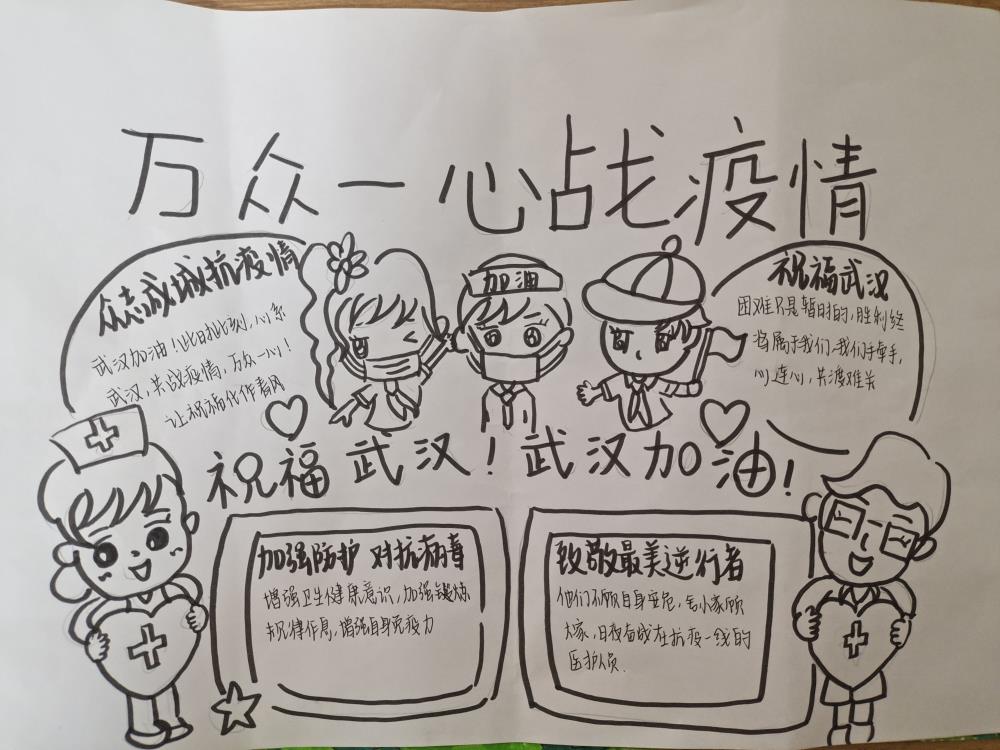 万众一心战疫情
众志成城抗疫情
武汉加油！此时此刻，心系
武汉，共战疫情，万众一心！
让祝福化作春风
加油
祝福武汉
困难只是暂时的，胜利终
将属于我们，我们手牵手，
心连心，共渡难关
祝福武汉！武汉加油！
加强防护 对抗病毒
增强卫生健康意识，加强锻炼
规律作息，增强自身免疫力
致敬最美逆行者
他们不顾自身安危，舍小家顾
大家，日夜奋战在抗疫一线的
医护人员.